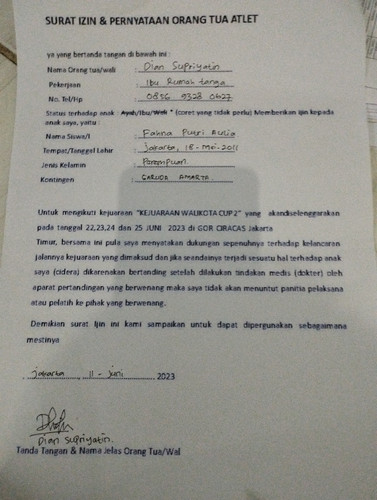 SURAT IZIN & PERNYATAAN ORANG TUA ATLET
ya yang bertanda tangan di bawah ini :
Nama Orang tua/wali : Dian Supriyatin
Pekerjaan : Ibu Rumah tanga
No. Tel/Hp : 0856 9328 0627
Status terhadap anak : Ayah/Ibu/Wali * (coret yang tidak perlu) Memberikan ijin kepada
anak saya, yaitu :
Nama Siswa/I : Putri Aulia
Tempat/Tanggal Lahir : Jakarta, 18 - Mei - 2011
Jenis Kelamin : Perempuan
Kontingen : GARUDA AMARTA
Untuk mengikuti kejuaraan "KEJUARAAN WALIKOTA CUP 2" yang akandiselenggarakan
pada tanggal 22,23,24 dan 25 JUNI 2023 di GOR CIRACAS Jakarta
Timur, bersama ini pula saya menyatakan dukungan sepenuhnya terhadap kelancaran
jalannya kejuaraan yang dimaksud dan jika seandainya terjadi sesuatu hal terhadap anak
saya (cidera) dikarenakan bertanding setelah dilakukan tindakan medis (dokter) oleh
aparat pertandingan yang berwenang maka saya tidak akan menuntut panitia pelaksana
atau pelatih ke pihak yang berwenang.
Demikian surat Ijin ini kami sampaikan untuk dapat dipergunakan sebagaimana
mestinya
Jakarta, 11 - Juni 2023
Dian Supriyatin.
Tanda Tangan & Nama Jelas Orang Tua/Wal